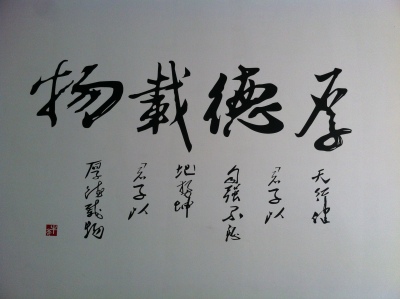 厚德載物
天行健
君子以
自強不息
地势坤
君子以
厚德載物